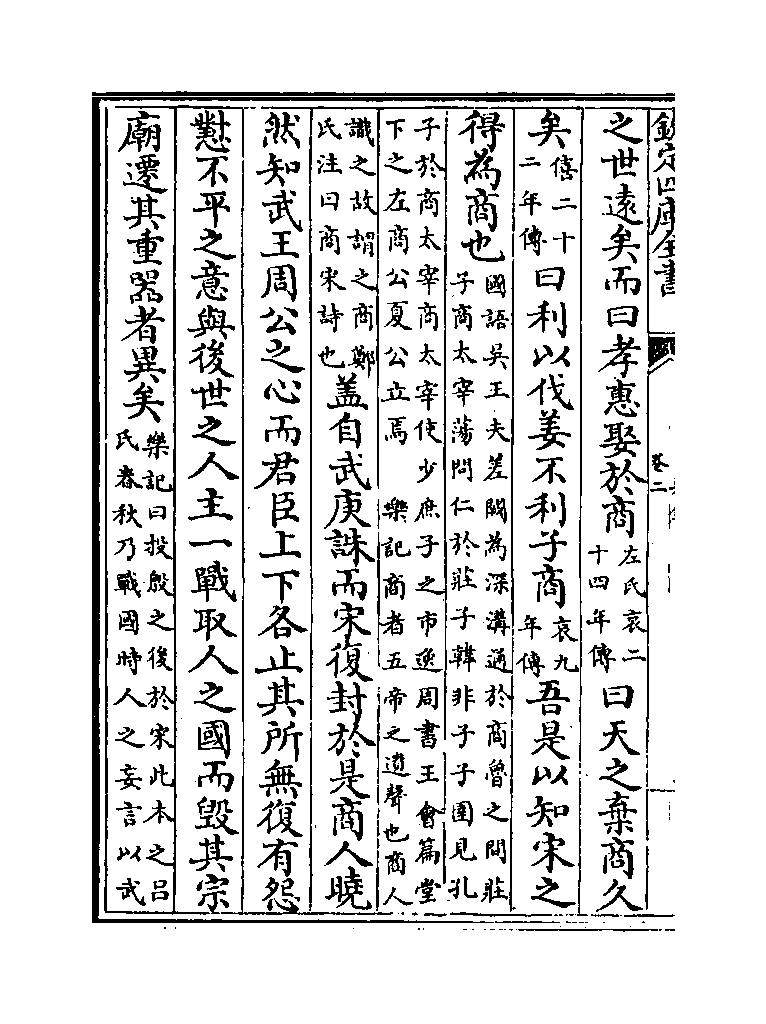 欽定四庫全書
卷二
之世遠矣而曰孝惠娶於商左氏哀二十四年傳曰天之棄商久
矣僖二十二年傳曰利以伐姜不利子商哀九年傳吾是以知宋之
得為商也國語吳王夫差闕為深溝通於商魯之間莊子商太宰蕩問仁於莊子韓非子子圉見孔
子於商太宰商太宰使少庶子之市逸周書王會篇堂下之左商公夏公立焉 樂記商者五帝之遺聲也商人
識之故謂之商鄭氏注曰商宋詩也蓋自武庚誅而宋復封於是商人曉
然知武王周公之心而君臣上下各止其所無復有怨
懟不平之意與後世之人主一戰取人之國而毀其宗
廟遷其重器者異矣樂記曰投殷之後於宋此本之呂氏春秋乃戰國時人之妄言以武